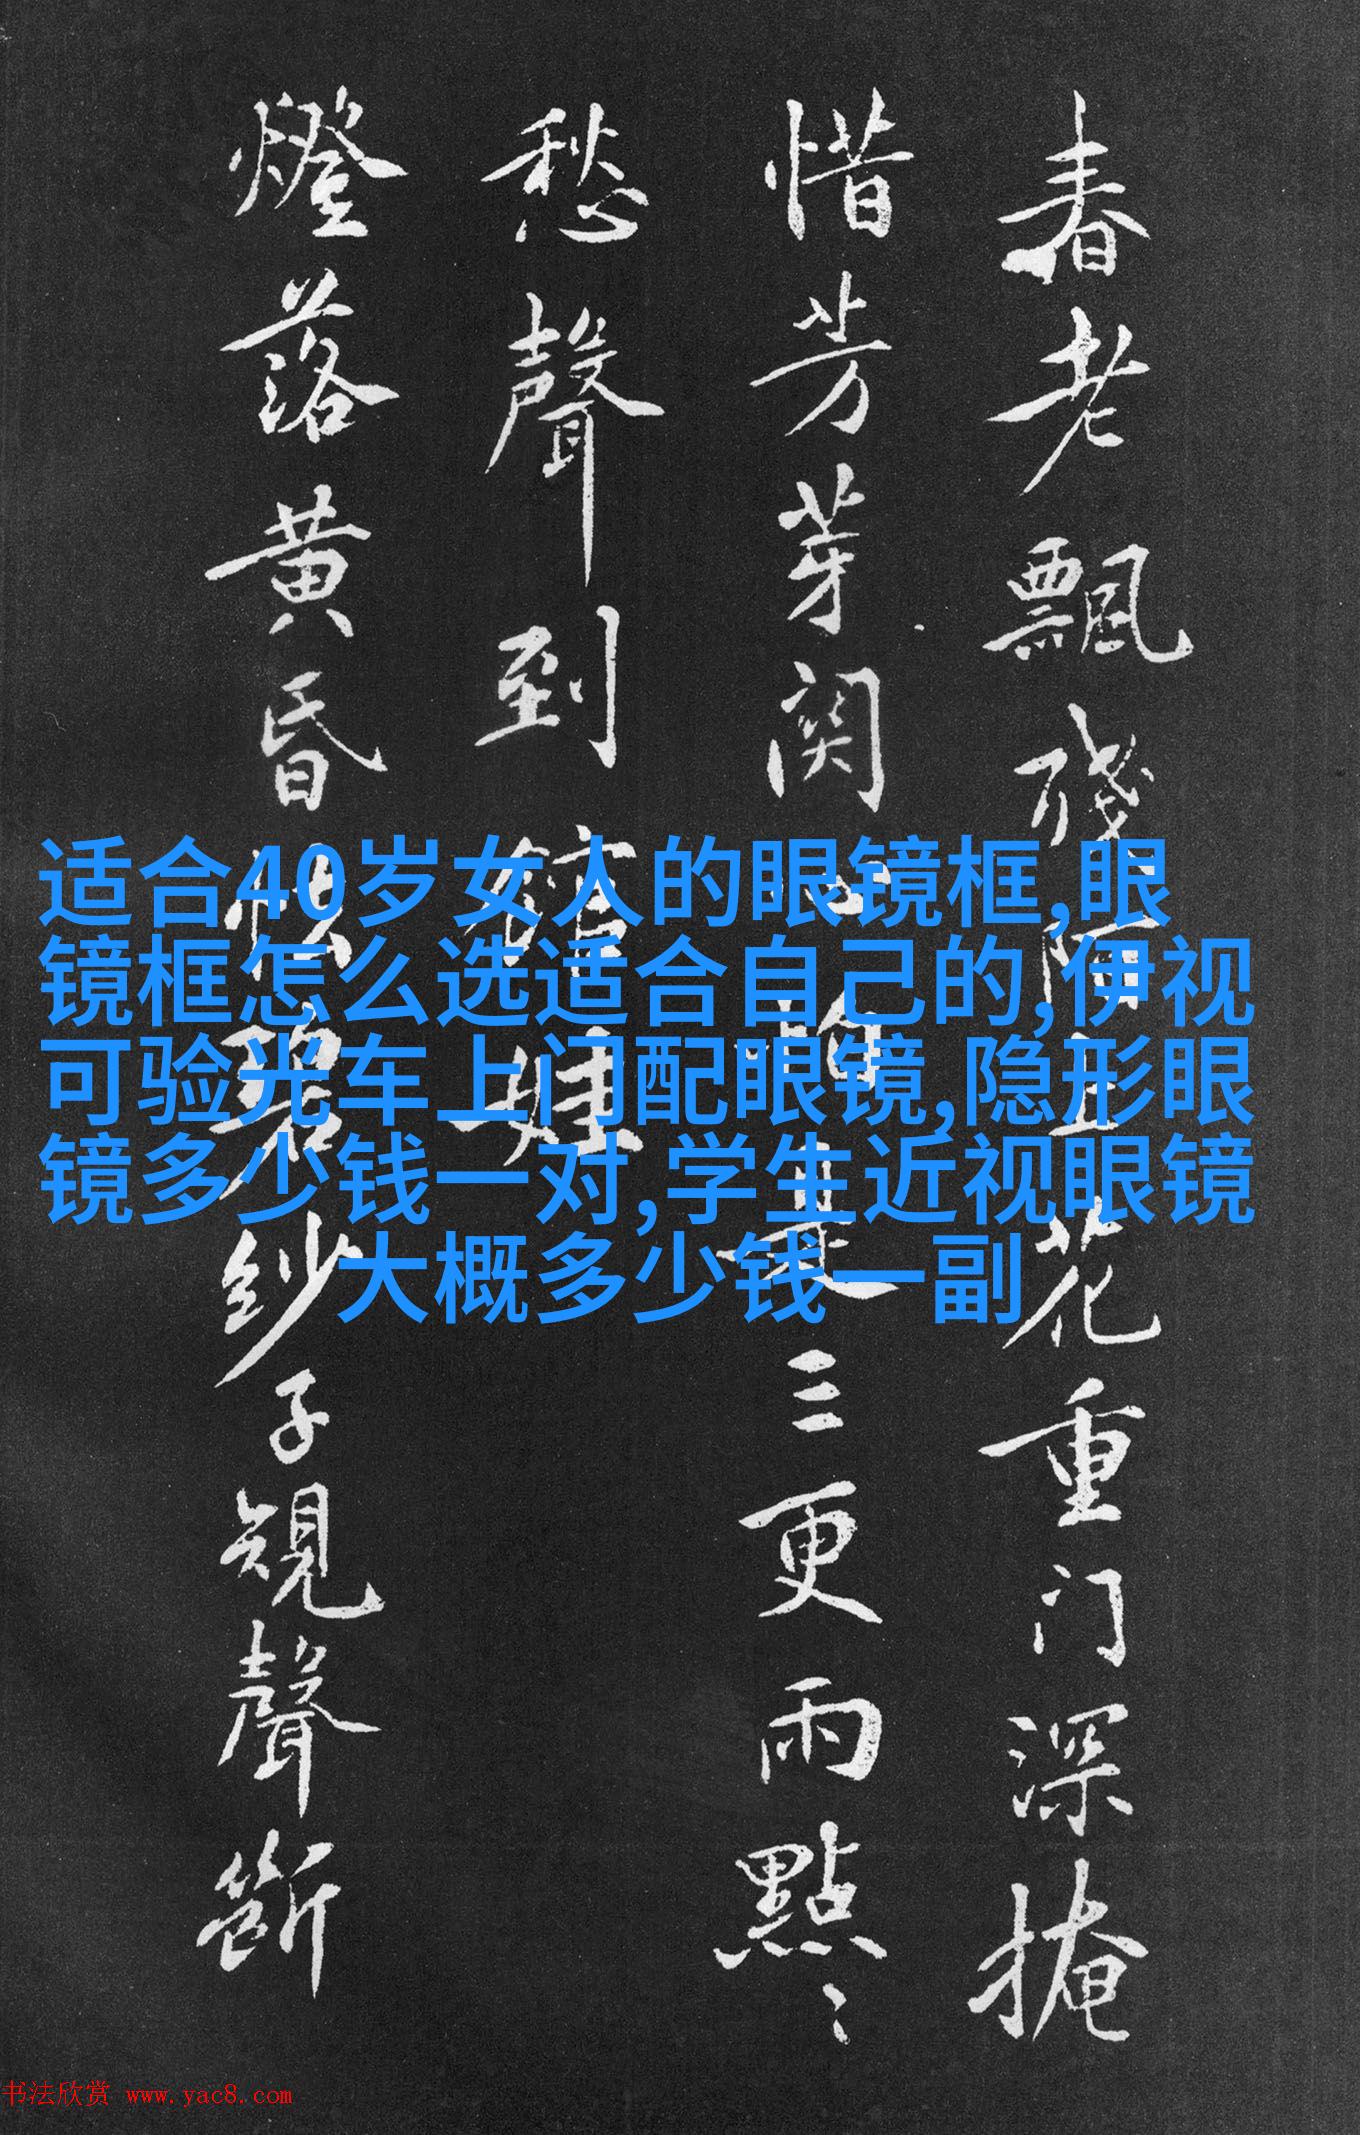 春老飄殘陌上花重门深掩
惜芳芽関心怕是三更雨點〻
愁聲到館娃
燈落黄昏碧紗子規聲斷
适合40岁女人的眼镜框,眼
镜框怎么选适合自己的,伊视
可验光车上门配眼镜,隐形眼
镜多少钱一对,学生近视眼镜
大概多少钱一副
书法欣赏 www.yac8.com